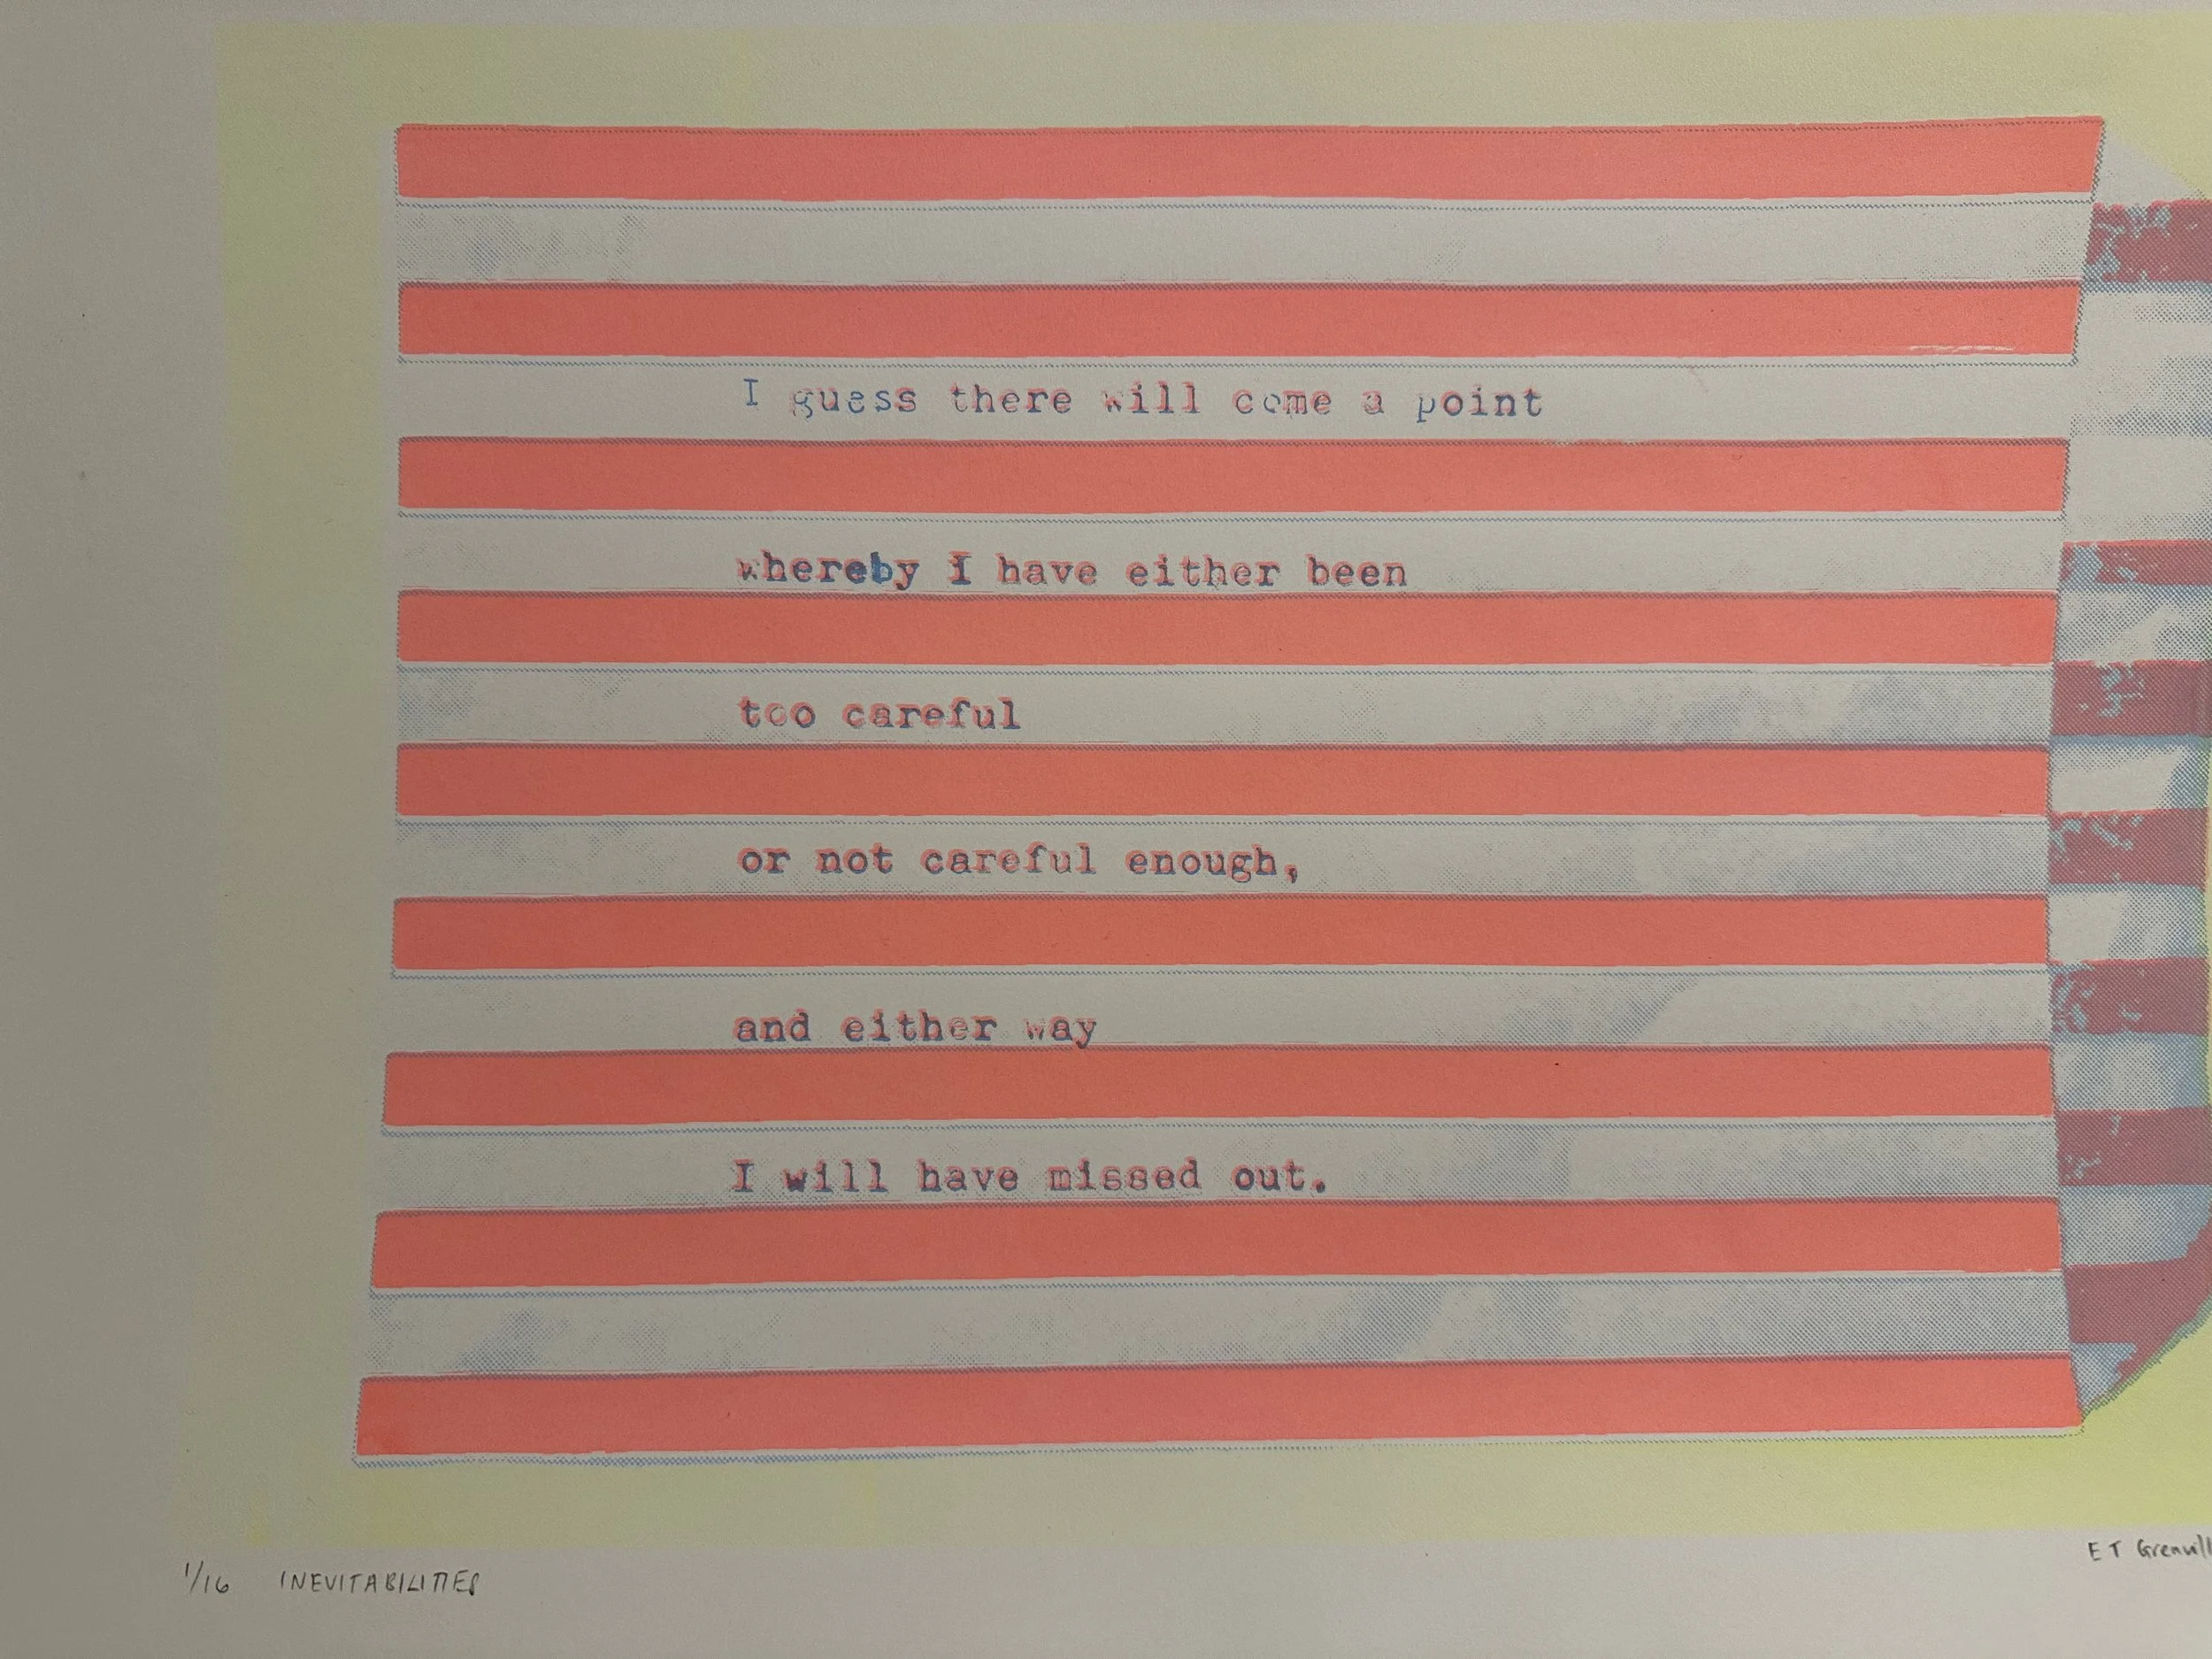 I guess there will come a point
whereby I have either been
too careful
or not careful enough,
and either way
I will have missed out.
1/16 INEVITABILITIES
E T Grenvill